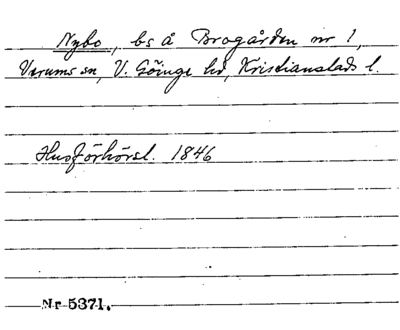 Nybo, bs å Brogården nr 1,
Verums sn, V. Göinge hd, Kristianstads l.
Husförhörsl. 1846
Nr 5371.